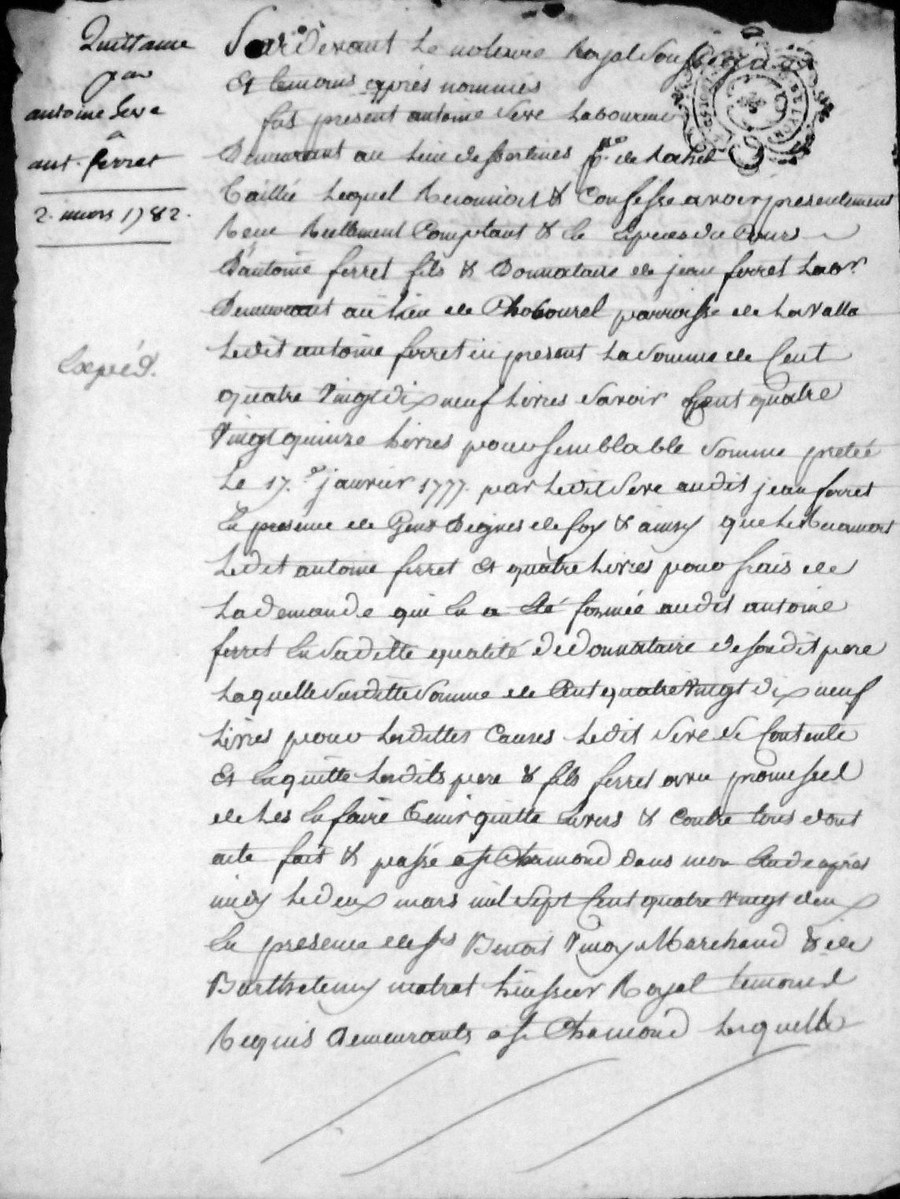 Quittance
par
antoine Seve
a
ant. ferret
2. mars 1782.
Expéd.
Pardevant Le notaire Royal Soussigné
Et temoins après nommés
fut present antoine Seve Laboureur
Demeurant au Lieu de
taillée Lequel Reconnoit & Confesse avoir presentement
Receu Reellement Comptant & En Especes du Cours
D'antoine ferret fils & Donnataire de jean ferret Labr.
Demeurant au Lieu de Chobourel parroisse de Lavalla
Ledit antoine ferret ici present La Somme de Cent
quatre Vingt dix neuf Livres Savoir Cent quatre
Vingt quinze Livres pour semblable Somme pretée
Le 17.e janvier 1777. par Ledit Seve audit jean ferret
En presence de Gens Dignes de foy & ainsy que Le Reconnoit
Ledit antoine ferret Et quatre Livres pour frais de
La demande qui En a Eté formée audit antoine
ferret En Sa ditte qualité de donnataire de son dit pere
Laquelle Susditte Somme de Cent quatre vingt dix neuf
Livres pour Lesdittes Causes Ledit Seve Se Contente
Et En quitte Lesdits pere & fils ferret avec promesse
de Les En faire tenir quitte Envers & Contre tous dont
acte fait & passé a St Chamond dans mon Etude après
midy Le deux mars mil Sept Cent quatre vingt deux
En presence de Sr Benoit Marchand & de
Barthelemy matrat huissier Royal temoins
Requis demeurants a St Chamond Lesquels